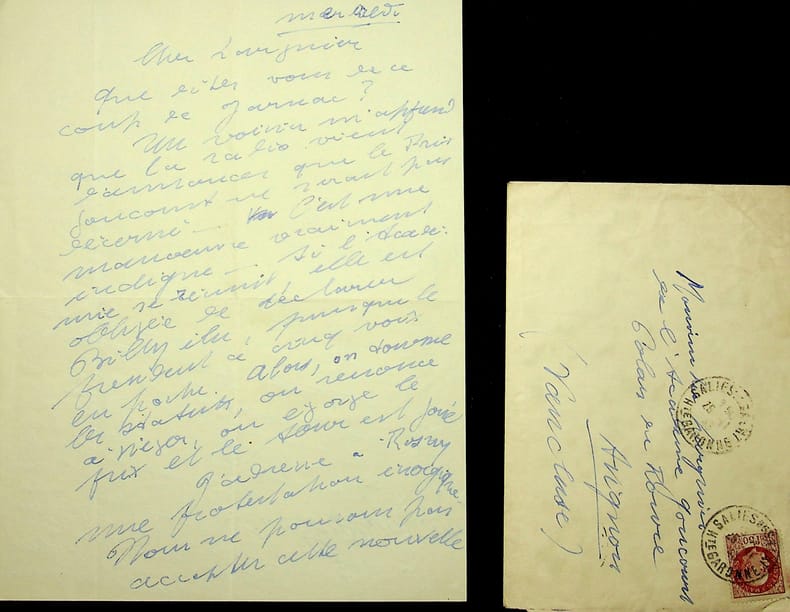 mercredi
Cher Larguier
que dites vous de ce
coup de Jarnac ?
Un voisin m'apprend
que la radio vient
d'annoncer que le Prix
Goncourt ne serait pas
décerné — C'est une
manœuvre vraiment
indigne — Si l'Acadé-
mie se réunit elle est
obligée de déclarer
Billy élu, puisque le
président a cinq voix
en poche. Alors, on tourne
les statuts, on renonce
à siéger, on égorge le
prix et le tour est joué
J'adresse à Rosny
une protestation énergique
Nous ne pouvons pas
accepter cette nouvelle
Monsieur Léo Larguier
de l'Académie Goncourt
Palais du Roure
Avignon
(Vaucluse)
SALIES-DU-SALAT
HTE GARONNE
SALIES-DU-SALAT
HTE GARONNE
1F50